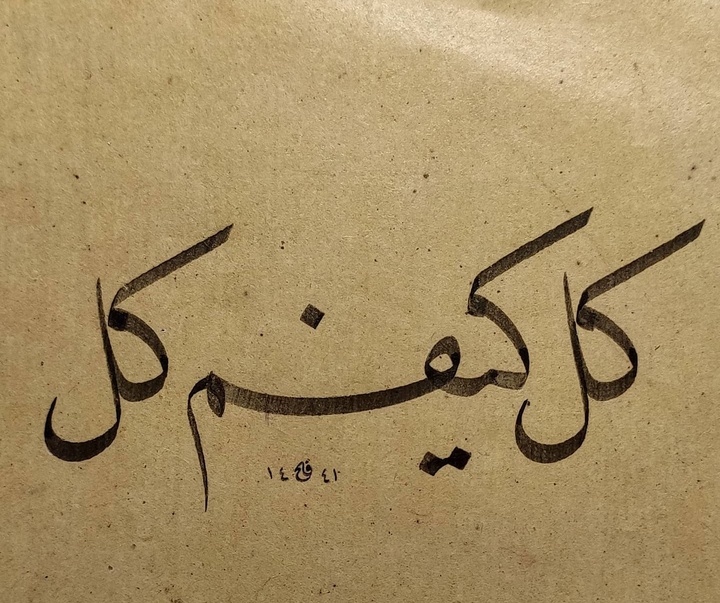 كل كيفم كل
١٤ ٤١